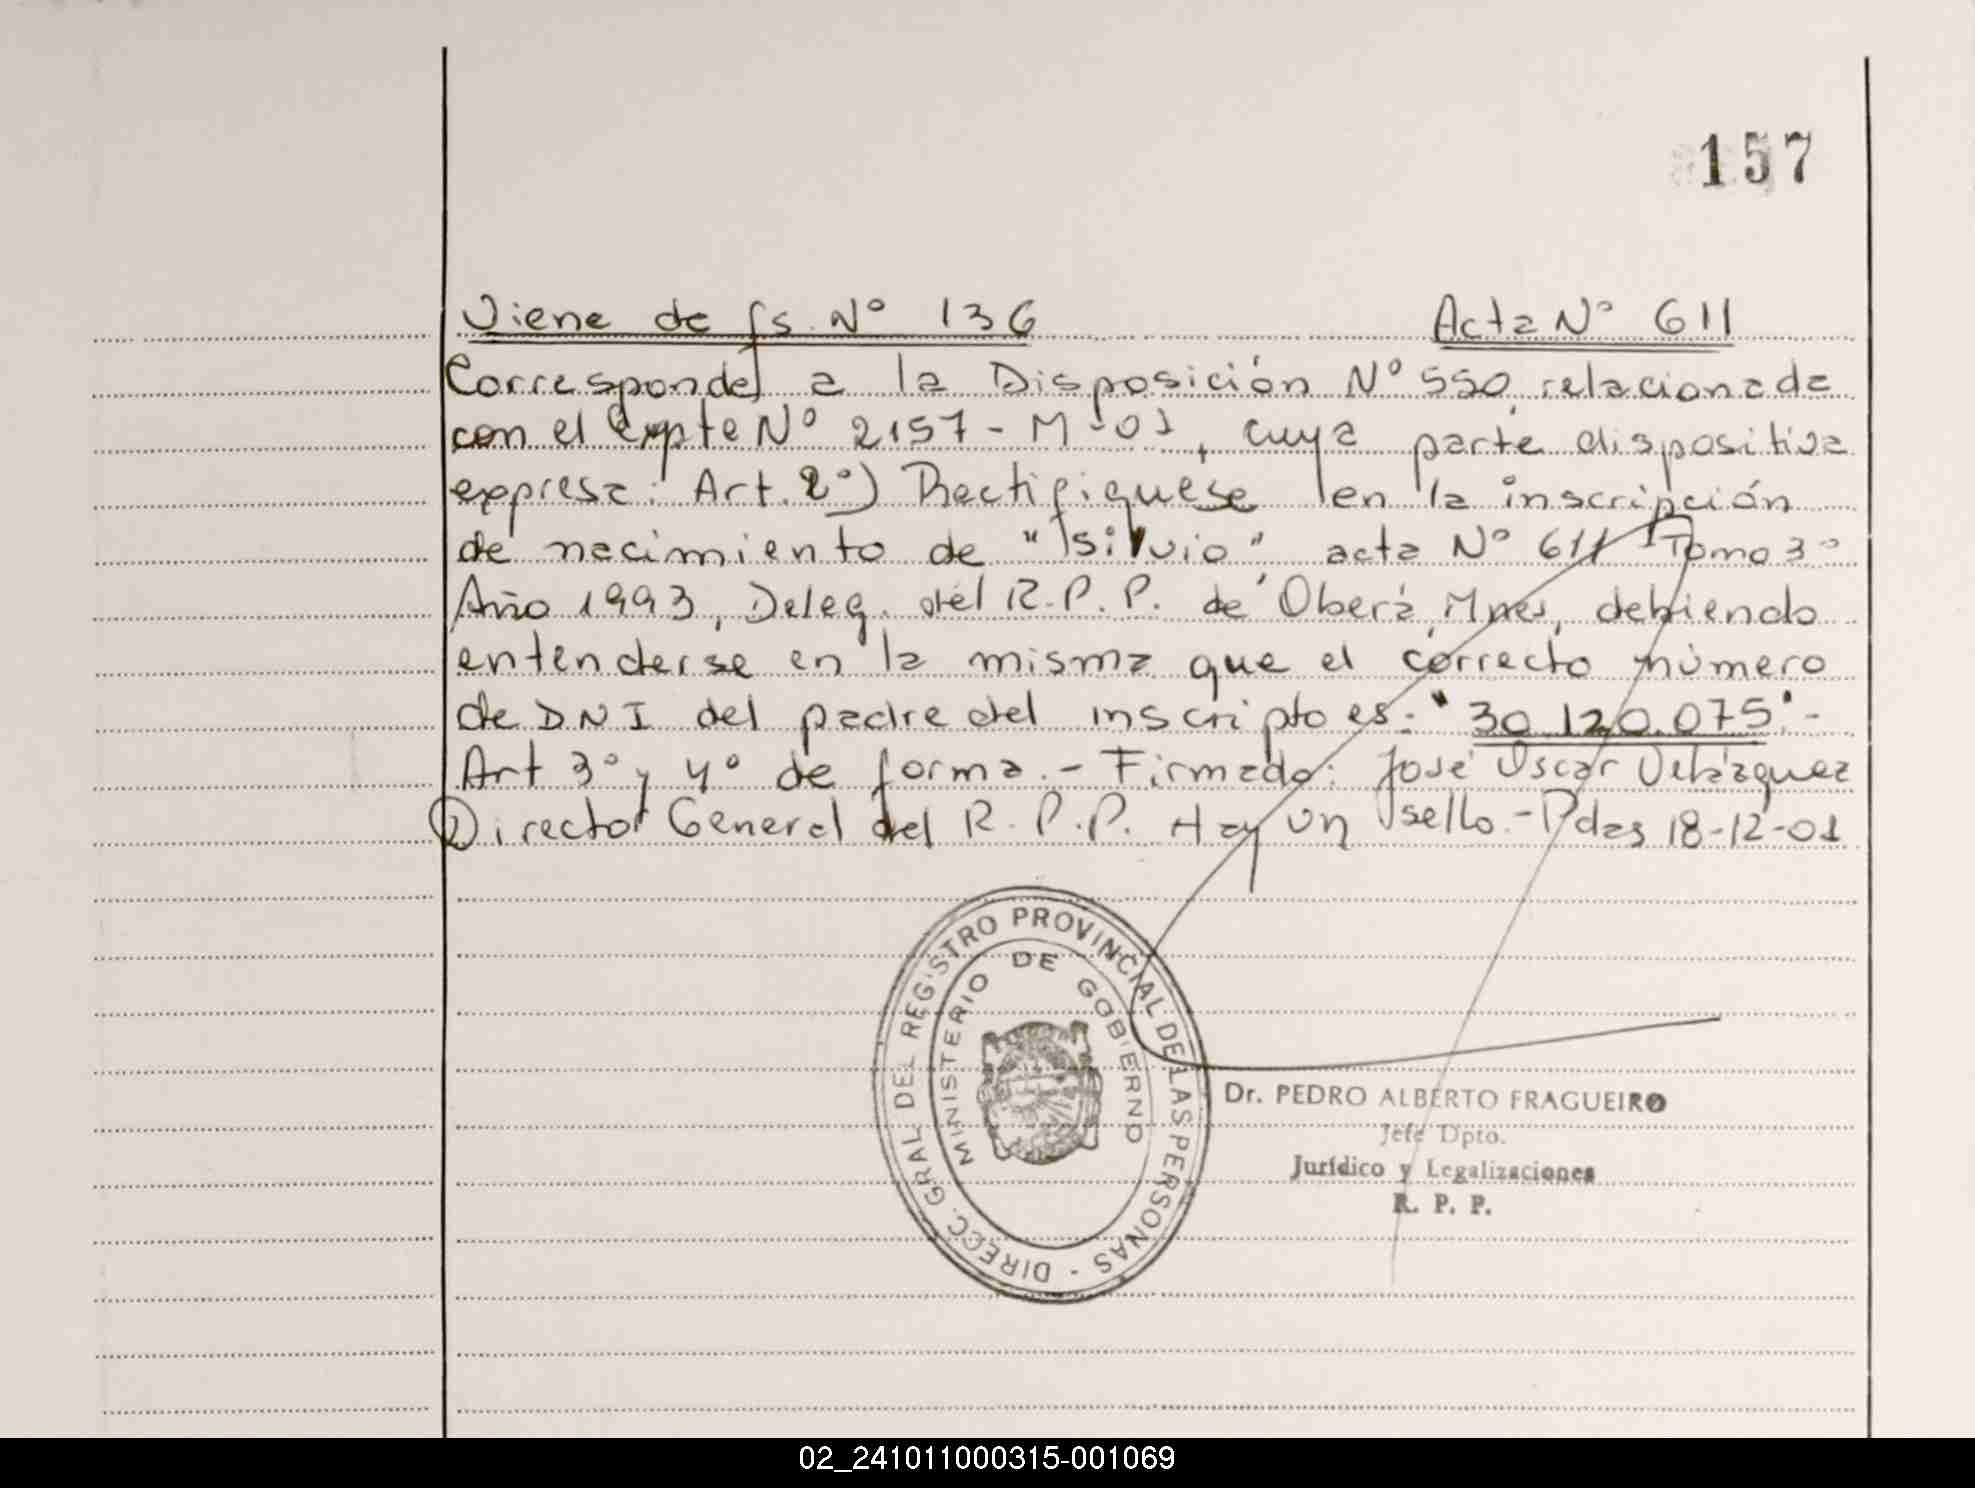 157
Viene de fs. Nº 136 Acta Nº 611
Corresponde a la Disposición Nº 550, relacionada
con el Expte Nº 2157 - M - 01, cuya parte dispositiva
expresa: Art. 2º) Rectifiquese en la inscripción
de nacimiento de "Silvio" acta Nº 611 Tomo 3º
Año 1993, Deleg. del R.P.P. de Oberá, Mnes, debiendo
entenderse en la misma que el correcto número
de DNI del padre del inscripto es: "30.120.075".-
Art 3º y 4º de forma.- Firmado: José Oscar Velázquez
Director General del R.P.P. Hay un sello.- Pdas 18-12-01
DIRECC. GRAL DEL REGISTRO PROVINCIAL DE LAS PERSONAS -
MINISTERIO DE GOBIERNO
Dr. PEDRO ALBERTO FRAGUEIRO
Jefe Dpto.
Jurídico y Legalizaciones
R. P. P.
02_241011000315-001069